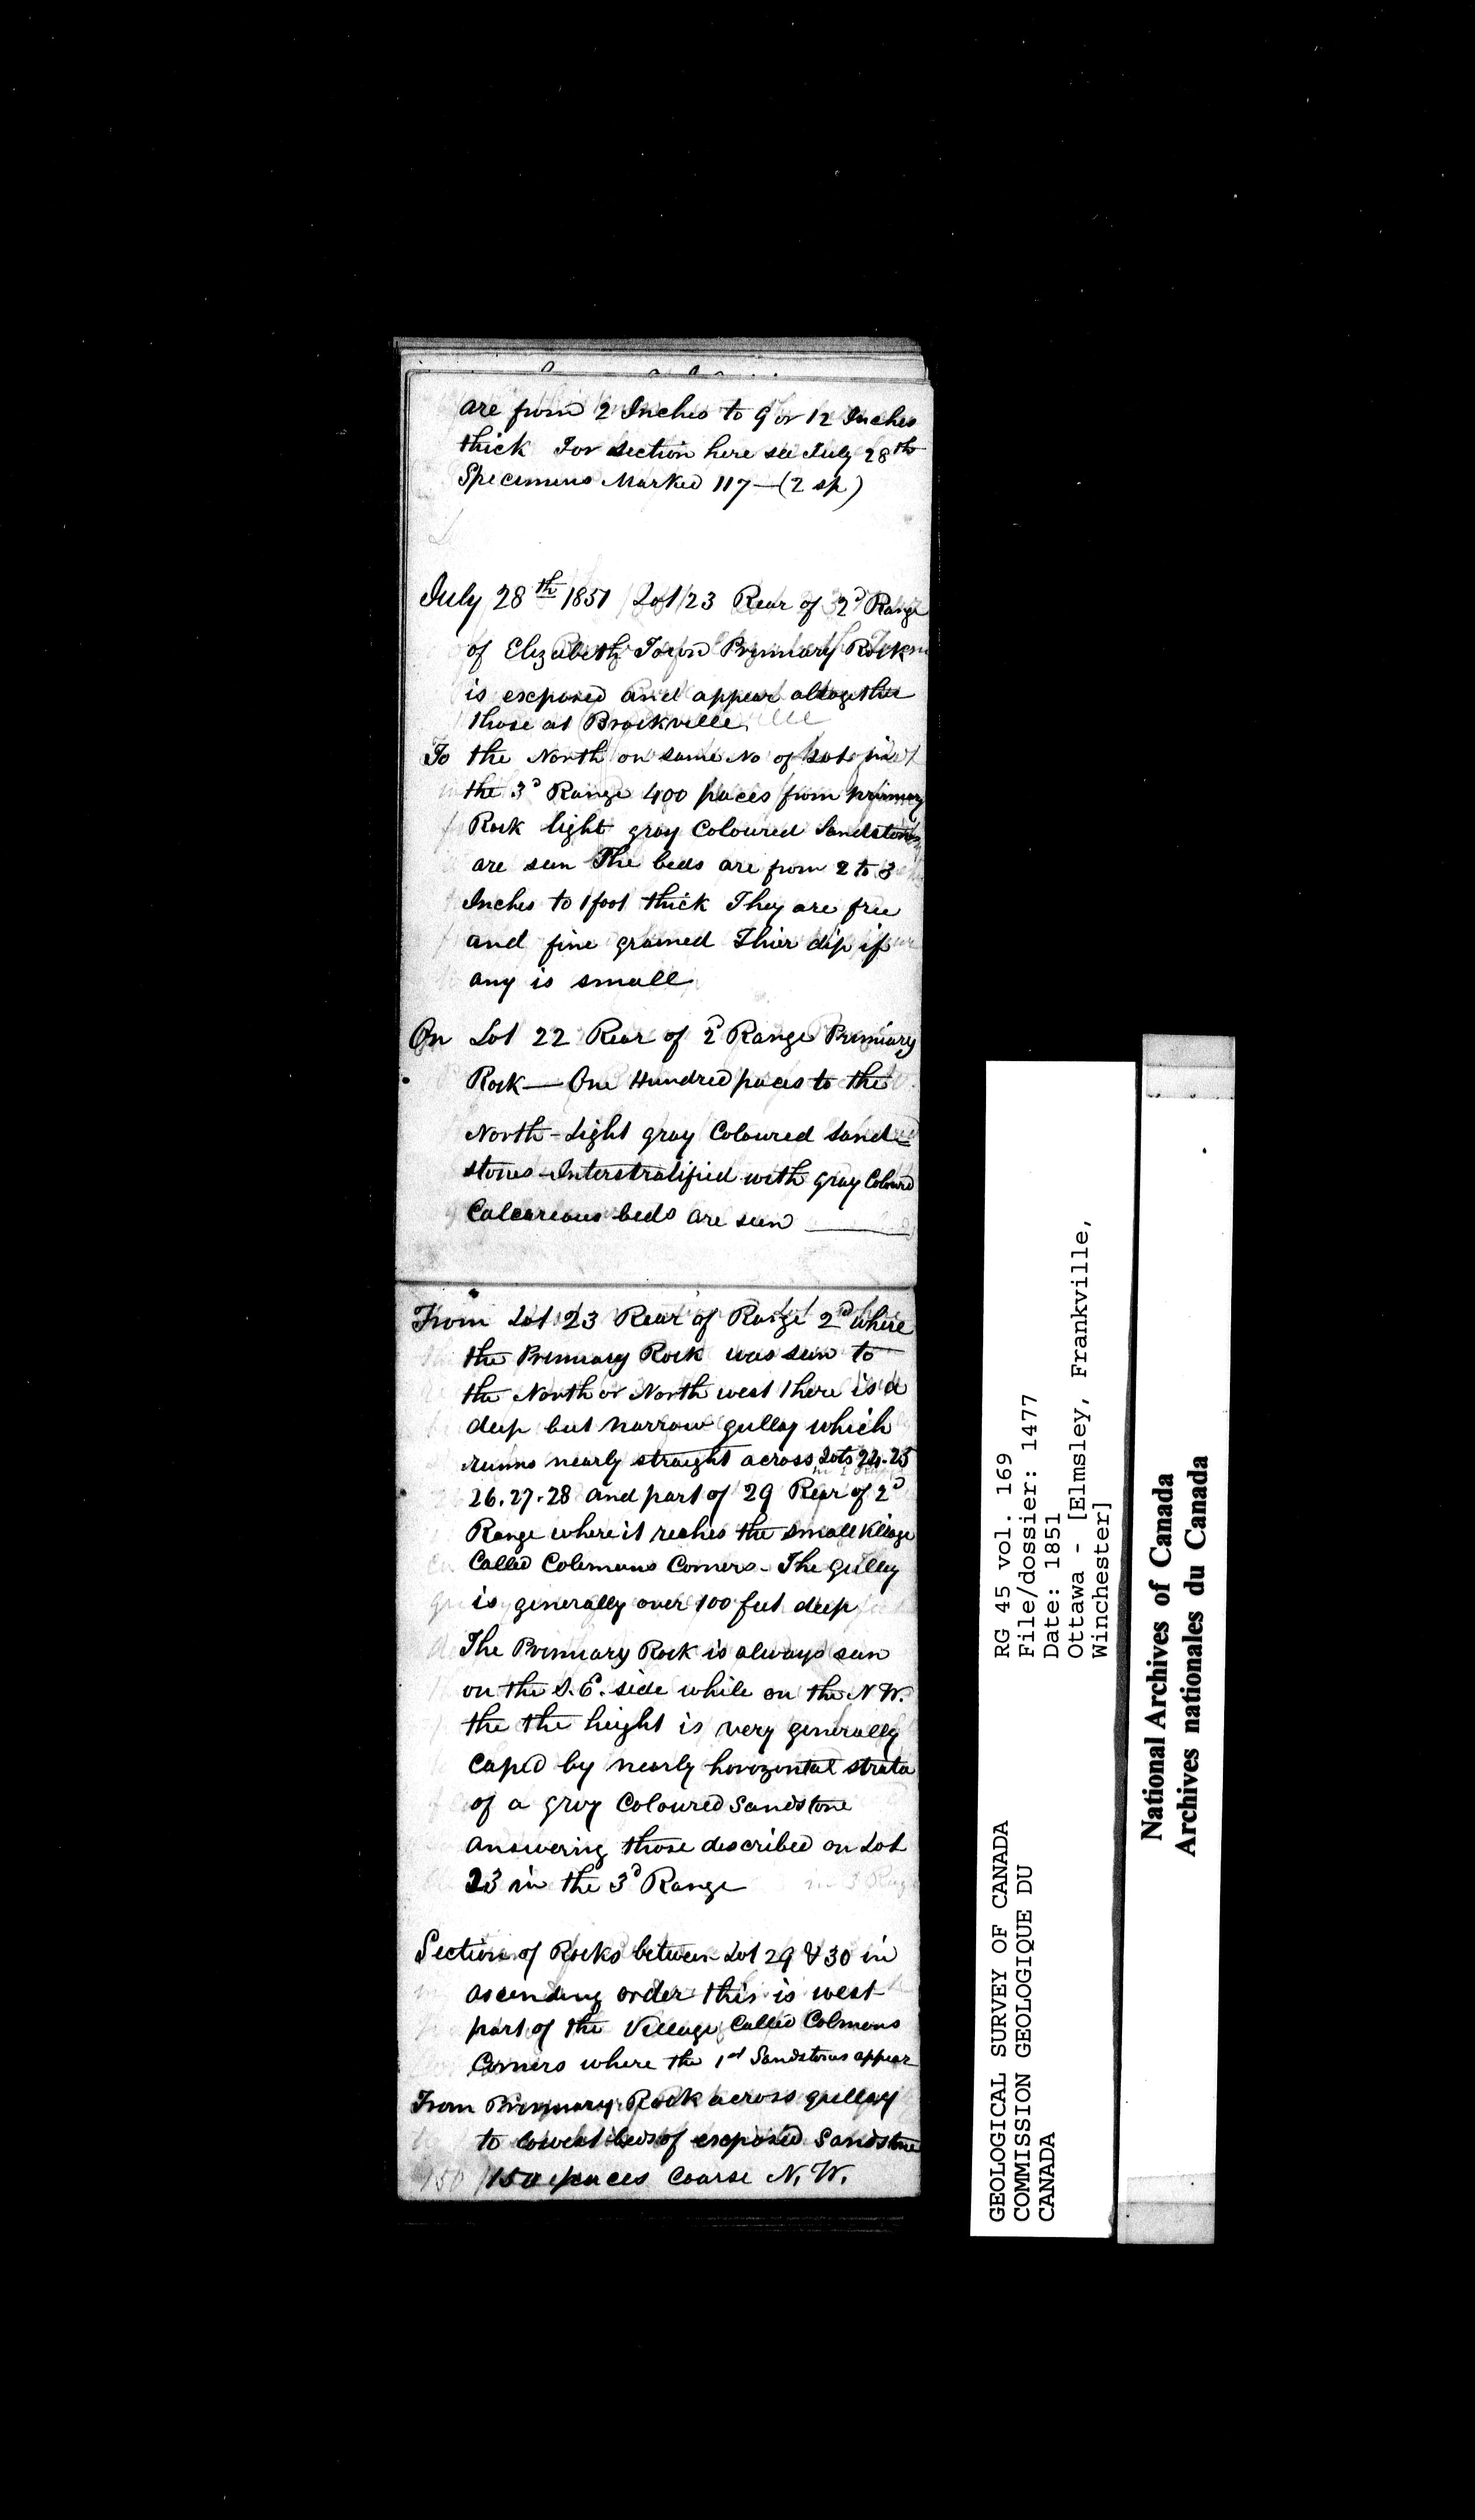 are from 2 Inches to 9 or 12 Inches
thick For section here see July 28th
Specimens Marked 117—(2 sp)
July 28th 1851 Lot 23 Rear of 2d Range
of Elizabeth Town Primmary Rock
is exposed and appear altogether
those at Brockville
To the North on same No of Lot in
the 3d Range 400 paces from primary
Rock light gray Coloured Sandstones
are seen The beds are from 2 to 3
Inches to 1 foot thick They are free
and fine grained Thier dip if
any is small
On Lot 22 Rear of 2d Range Primmary
Rock — One Hundred paces to the
North - Light gray Coloured Sand=
stones - Interstratified with gray Coloured
Calcareous beds are seen
From Lot 23 Rear of Range 2nd where
the Primmary Rock was seen to
the North or North west there is a
deep but narrow gulley which
runns nearly straight across Lots 24.25
26.27.28 and part of 29 Rear of 2d
Range where it reaches the small Village
Called Colemans Corners - The gulley
is generally over 100 feet deep
The Primmary Rock is always seen
on the S.E. side while on the N.W.
the the height is very generally
Caped by nearly horozontal strata
of a gray Coloured Sandstone
answering those described on Lot
23 in the 3d Range
Section of Rocks between Lot 29 & 30 in
ascending order this is west
part of the Village Called Colmans
Corners where the 1st Sandstones appear
From Primmary Rock across gulley
to lowest beds of exposed Sandstone
150 paces Coarse N.W.
GEOLOGICAL SURVEY OF CANADA
COMMISSION GEOLOGIQUE DU
CANADA
RG 45 vol. 169
File/dossier: 1477
Date: 1851
Ottawa - [Elmsley, Frankville,
Winchester]
National Archives of Canada
Archives nationales du Canada